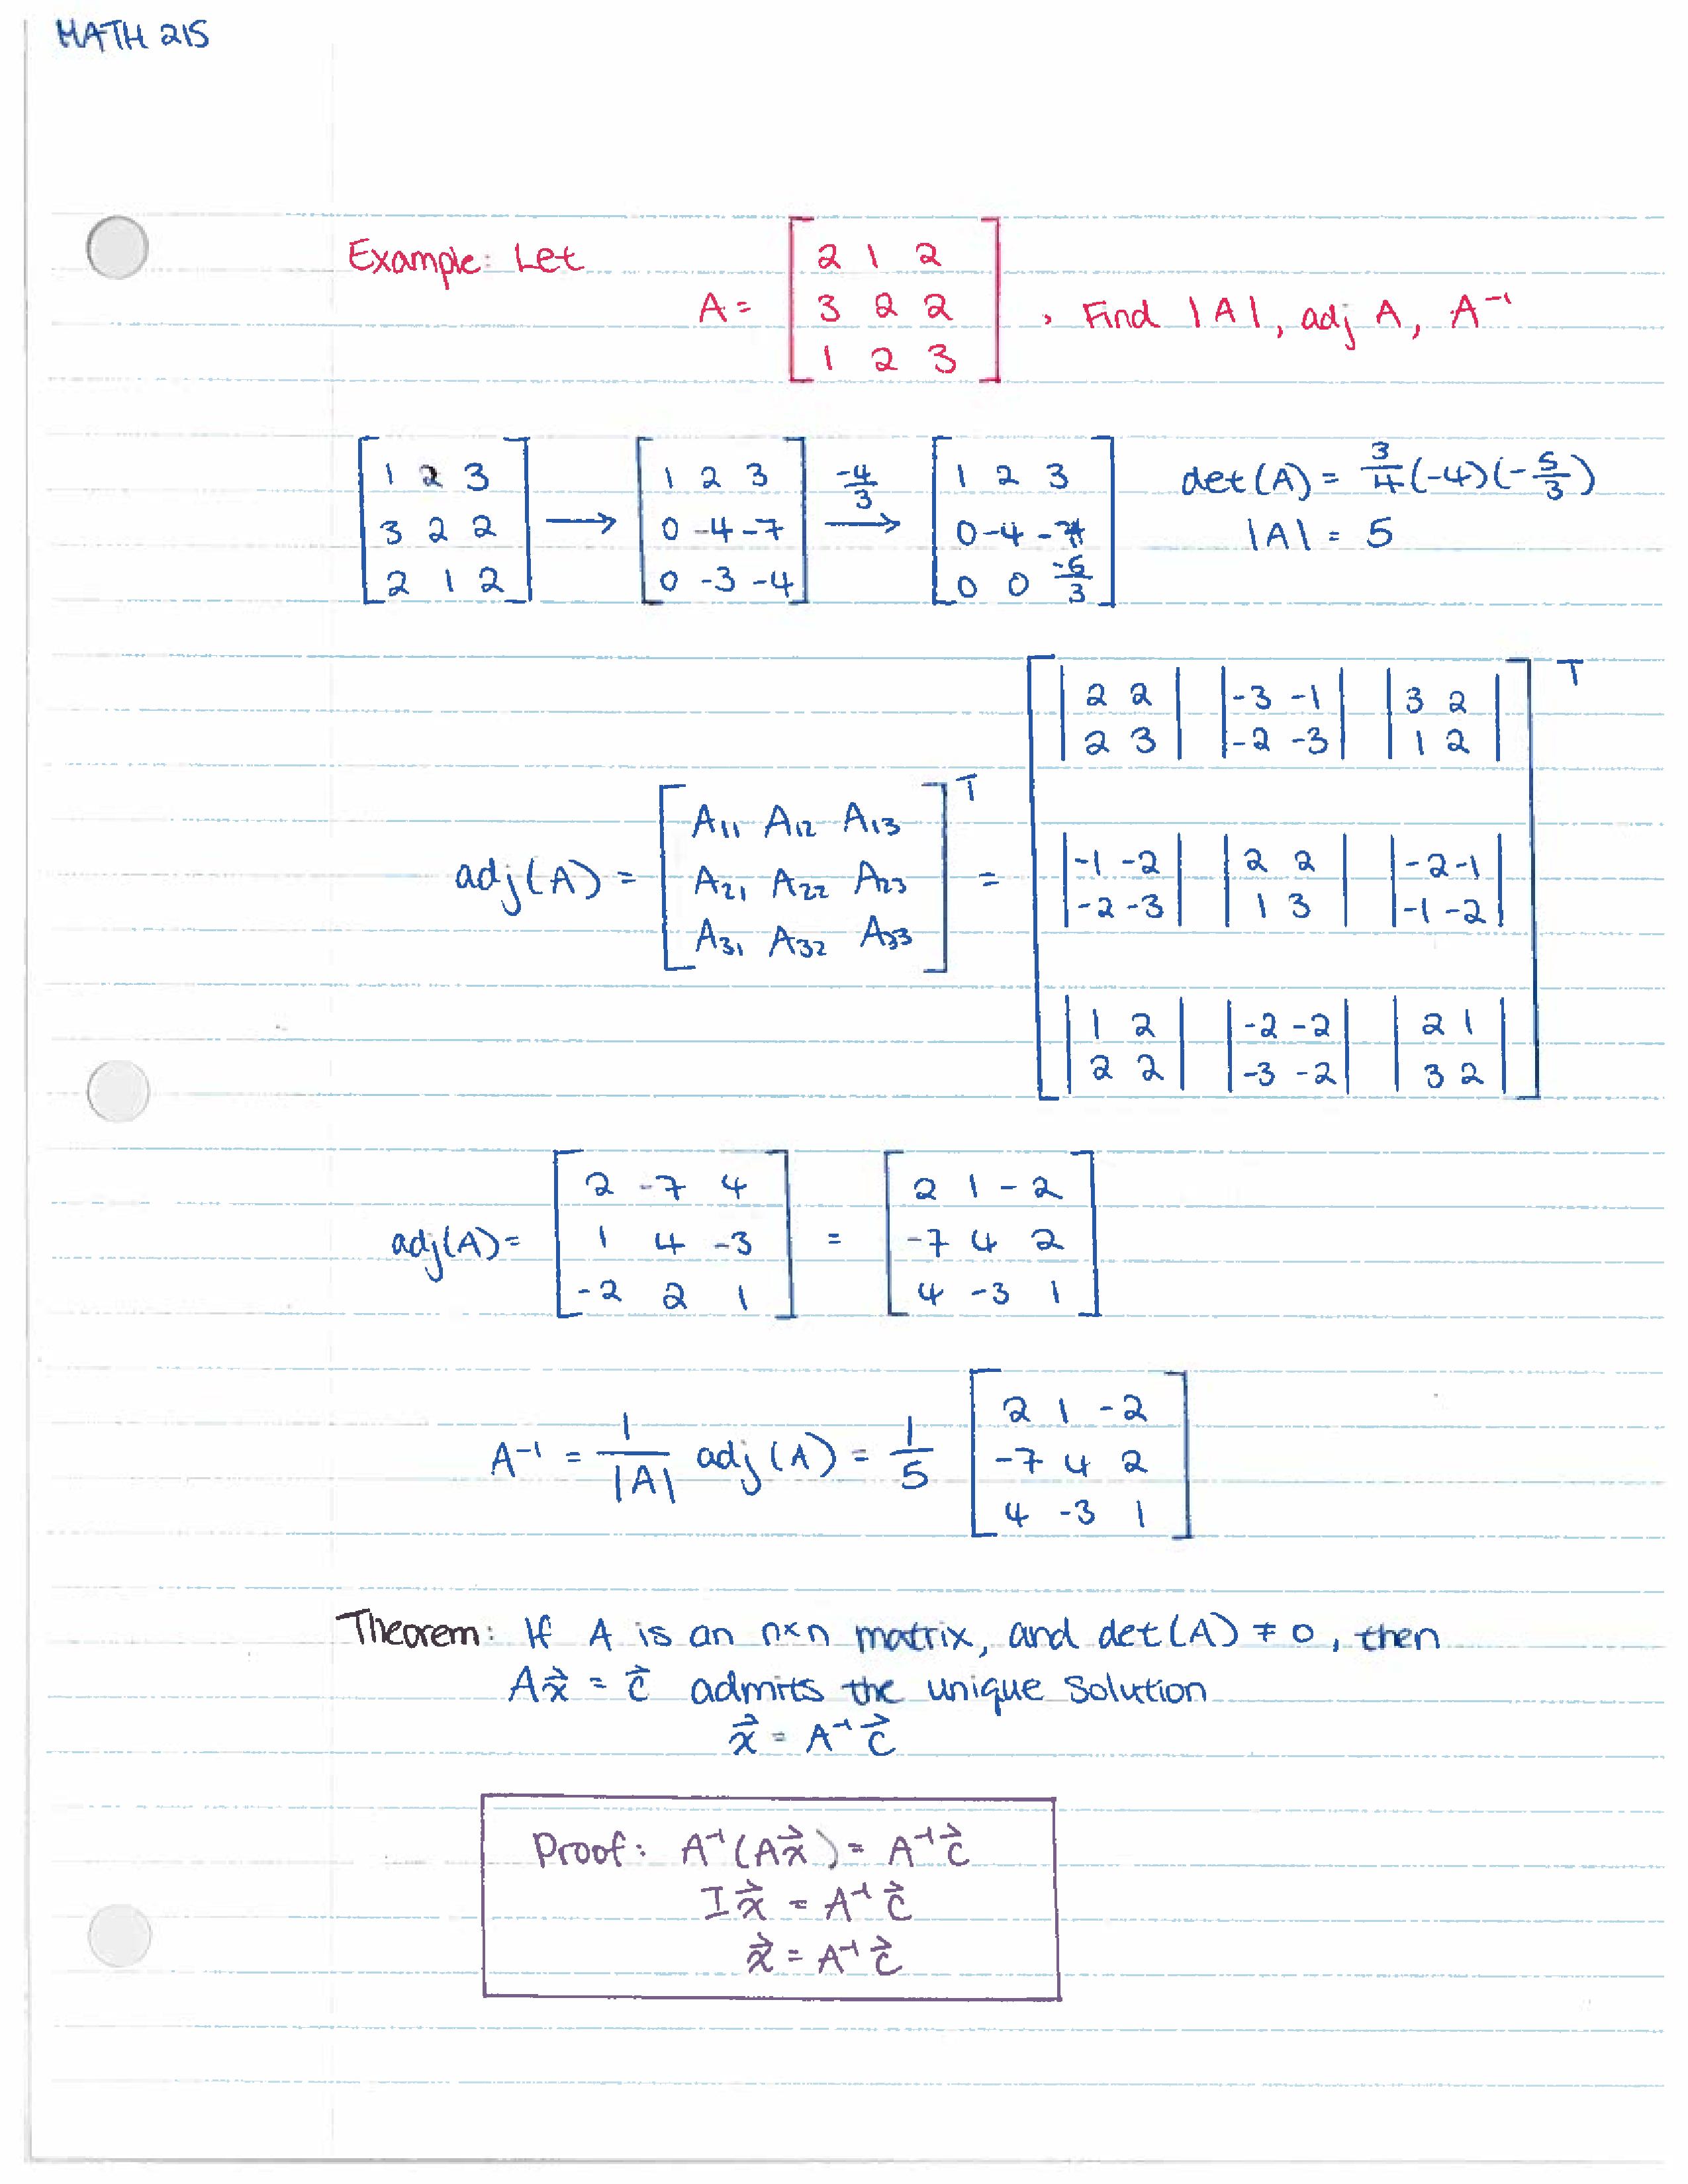 MATH 215
Example: Let
A = [ 2 1 2 ; 3 2 2 ; 1 2 3 ] , Find |A|, adj A, A⁻¹
[ 1 2 3 ; 3 2 2 ; 2 1 2 ] → [ 1 2 3 ; 0 -4 -7 ; 0 -3 -4 ] -4/3 → [ 1 2 3 ; 0 -4 -7 ; 0 0 -5/3 ] det(A) = 3/4 (-4)(-5/3)
|A| = 5
adj(A) = [ A₁₁ A₁₂ A₁₃ ; A₂₁ A₂₂ A₂₃ ; A₃₁ A₃₂ A₃₃ ]ᵀ = [ |2 2 ; 2 3| |-3 -1 ; -2 -3| |3 2 ; 1 2| ; |-1 -2 ; -2 -3| |2 2 ; 1 3| |-2 -1 ; -1 -2| ; |1 2 ; 2 2| |-2 -2 ; -3 -2| |2 1 ; 3 2| ]ᵀ
adj(A) = [ 2 -7 4 ; 1 4 -3 ; -2 2 1 ] = [ 2 1 -2 ; -7 4 2 ; 4 -3 1 ]
A⁻¹ = 1/|A| adj(A) = 1/5 [ 2 1 -2 ; -7 4 2 ; 4 -3 1 ]
Theorem: If A is an n×n matrix, and det(A) ≠ 0, then
Ax⃗ = c⃗ admits the unique solution
x⃗ = A⁻¹c⃗
Proof: A⁻¹(Ax⃗) = A⁻¹c⃗
Ix⃗ = A⁻¹c⃗
x⃗ = A⁻¹c⃗